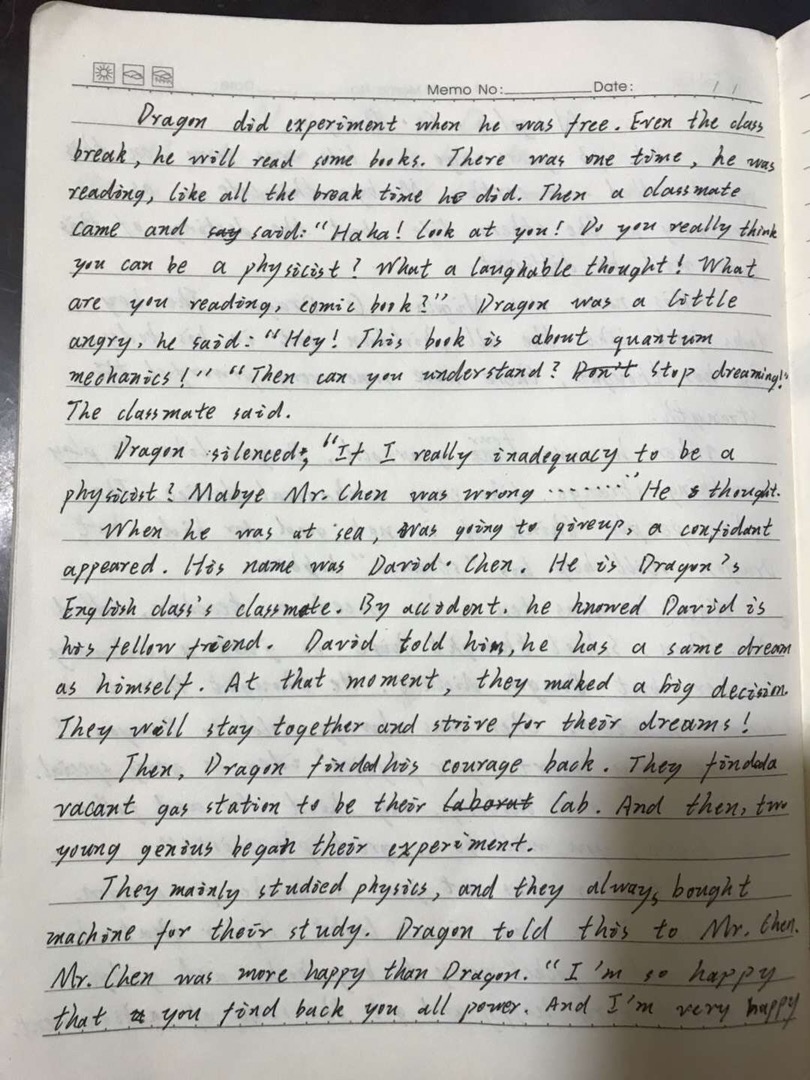 Memo No: Date: / /
Dragon did experiment when he was free. Even the class
break, he will read some books. There was one time, he was
reading, like all the break time he did. Then a classmate
came and say said: "Haha! Look at you! Do you really think
you can be a physicist? What a laughable thought! What
are you reading, comic book?" Dragon was a little
angry, he said: "Hey! This book is about quantum
mechanics!" "Then can you understand? Don't stop dreaming!"
The classmate said.
Dragon silenced, "If I really inadequacy to be a
physicist? Mabye Mr. Chen was wrong ......." He thought.
When he was at sea, was going to giveup, a confidant
appeared. His name was David·Chen. He is Dragon's
English class's classmate. By accident, he knowed David is
his fellow friend. David told him, he has a same dream
as himself. At that moment, they maked a big decision.
They will stay together and strive for their dreams!
Then, Dragon finded his courage back. They finded a
vacant gas station to be their Laborat Lab. And then, two
young genius began their experiment.
They mainly studied physics, and they always bought
machine for their study. Dragon told this to Mr. Chen.
Mr. Chen was more happy than Dragon. "I'm so happy
that you find back you all power. And I'm very happy